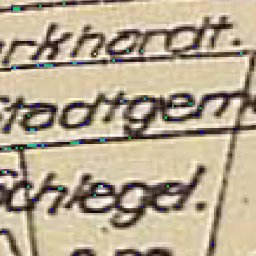 rkhardt.
Stadtgem
Schlegel.